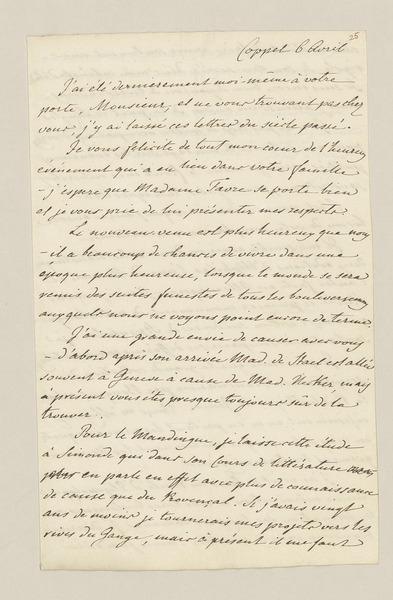 25
Coppet 6 Avril
J'ai été dernierement moi-même à votre
porte, Monsieur, et ne vous trouvant pas chez
vous j'y ai laissé ces lettres du siècle passé.
Je vous félicite de tout mon cœur de l'heureux
événement qui a eu lieu dans votre famille
- j'espere que Madame Favre se porte bien
et je vous prie de lui présenter mes respects.
Le nouveau venu est plus heureux que nous
- il a beaucoup de chances de vivre dans une
époque plus heureuse, lorsque le monde se sera
remis des suites funestes de tous les bouleversemens
auxquels nous ne voyons point encore de terme.
J'ai une grande envie de causer avec vous
- d'abord après son arrivée Mad. de Stael est allée
souvent à Geneve à cause de Mad. Necker mais
à présent vous êtes presque toujours sûr de la
trouver.
Pour le Mandingue, je laisse cette étude
à Simonde qui dans son Cours de littérature
en parle en effet avec plus de connaissance
de cause que du Provençal. Si j'avais vingt
ans de moins je tournerais mes projets vers les
rives du Gange, mais à présent il me faut